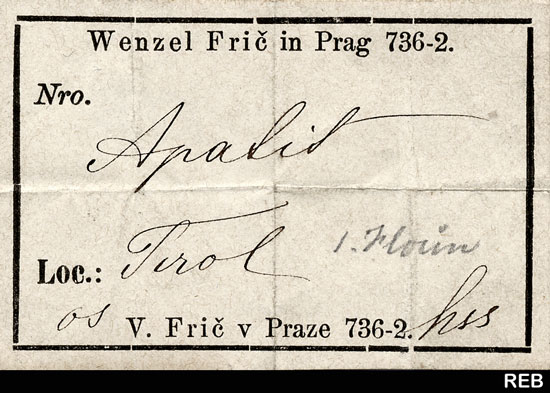 Wenzel Frič in Prag 736-2.
Nro.
Apatit
Loc.: Tirol 1. Florin
os V. Frič v Praze 736-2. hss
REB